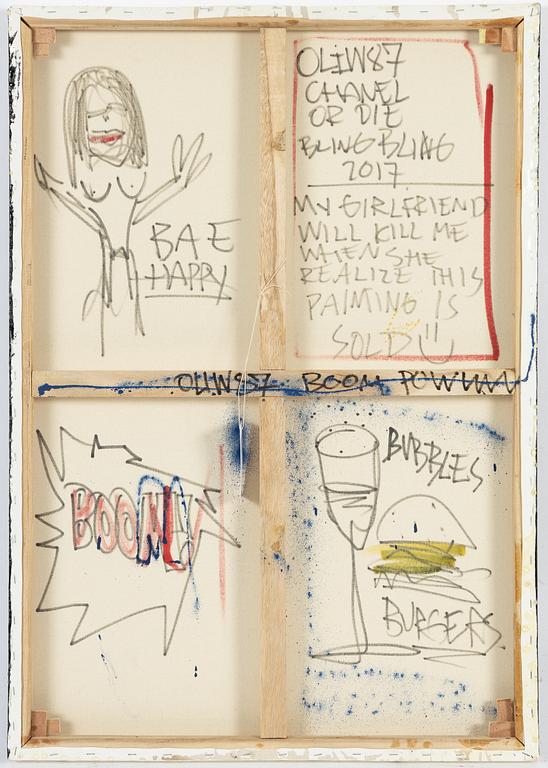 BAE
HAPPY
OLIW87
CHANEL
OR DIE
BLING BLING
2017
MY GIRLFRIEND
WILL KILL ME
WHEN SHE
REALIZE THIS
PAIMING IS
SOLD
OLIW87 BOOM POW
BOOM!
BUBBLES
BURGERS